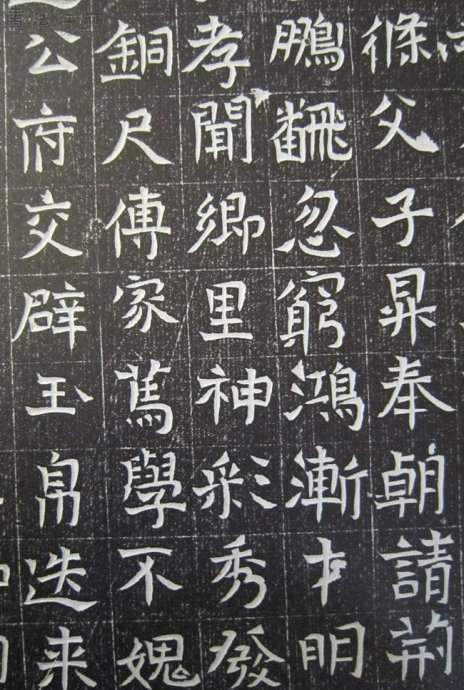 條父子昇奉朝請荊
鵬飜忽窮鴻漸才明
孝聞鄉里神彩秀發
銅尺傳家篤學不媿
公府交辟玉帛迭来